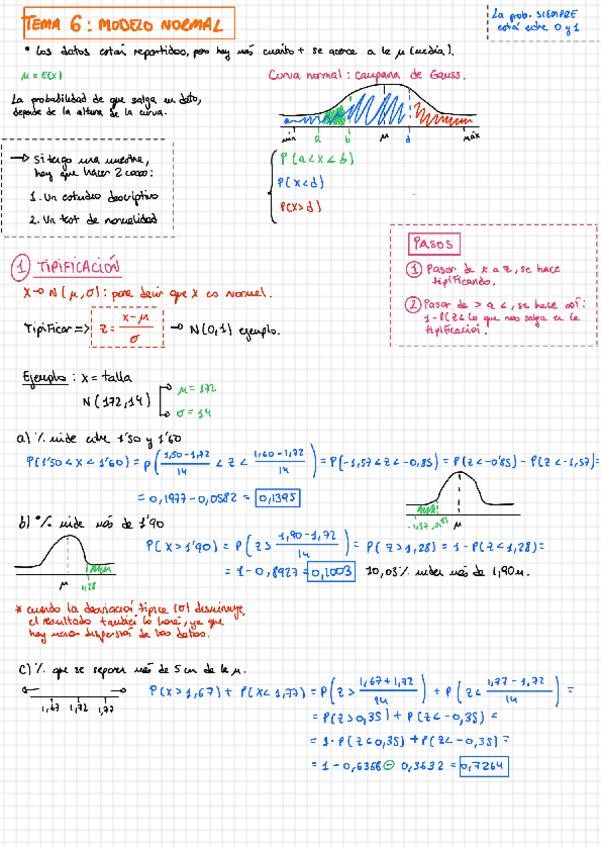 TEMA 6: MODELO NORMAL
La prob. SIEMPRE
está entre 0 y 1
* Los datos están repartidos, pero hay más cuánto + se acerca a la μ (media).
μ = E(x)
Curva normal: campana de Gauss.
La probabilidad de que salga un dato,
depende de la altura de la curva.
min a b μ d máx
P(a<x<b)
P(x<d)
P(x>d)
→ Si tengo una muestra,
hay que hacer 2 cosas:
1. Un estudio descriptivo
2. Un test de normalidad
PASOS
1 Pasar de x a z, se hace
tipificando.
2 Pasar de > a <, se hace así:
1-P(z< lo que nos salga en la
tipificación.
1 TIPIFICACIÓN
X→ N(μ,σ): para decir que X es normal.
Tipificar => z = x-μ / σ → N(0,1) ejemplo.
Ejemplo: x = talla
N(172,14) → μ = 172
→ σ = 14
a) % mide entre 1'50 y 1'60
P(1'50 < x < 1'60) = P(1,50-1,72 / 14 < z < 1,60-1,72 / 14) = P(-1,57<z<-0,85) = P(z<-0'85) - P(z<-1,57)=
= 0,1977-0,0582 = 0,1395
-1,57 -0,85 μ
b) % mide más de 1'90
P(x>1'90) = P(z> 1,90-1,72 / 14) = P(z>1,28) = 1-P(z<1,28)=
= 1-0,8927= 0,1003 10,03% miden más de 1,90m.
μ 1,28
* cuando la desviación típica (σ) disminuye
el resultado también lo hará, ya que
hay menor dispersión de los datos.
c) % que se separa más de 5 cm de la μ.
1,67 1,72 1,77
P(x>1,67) + P(x<1,77) = P(z> 1,67+1,72 / 14) + P(z< 1,77-1,72 / 14) =
= P(z>0,35) + P(z<-0,35) =
= 1-P(z<0,35) + P(z<-0,35) =
= 1-0,6368 - 0,3632 = 0,7264